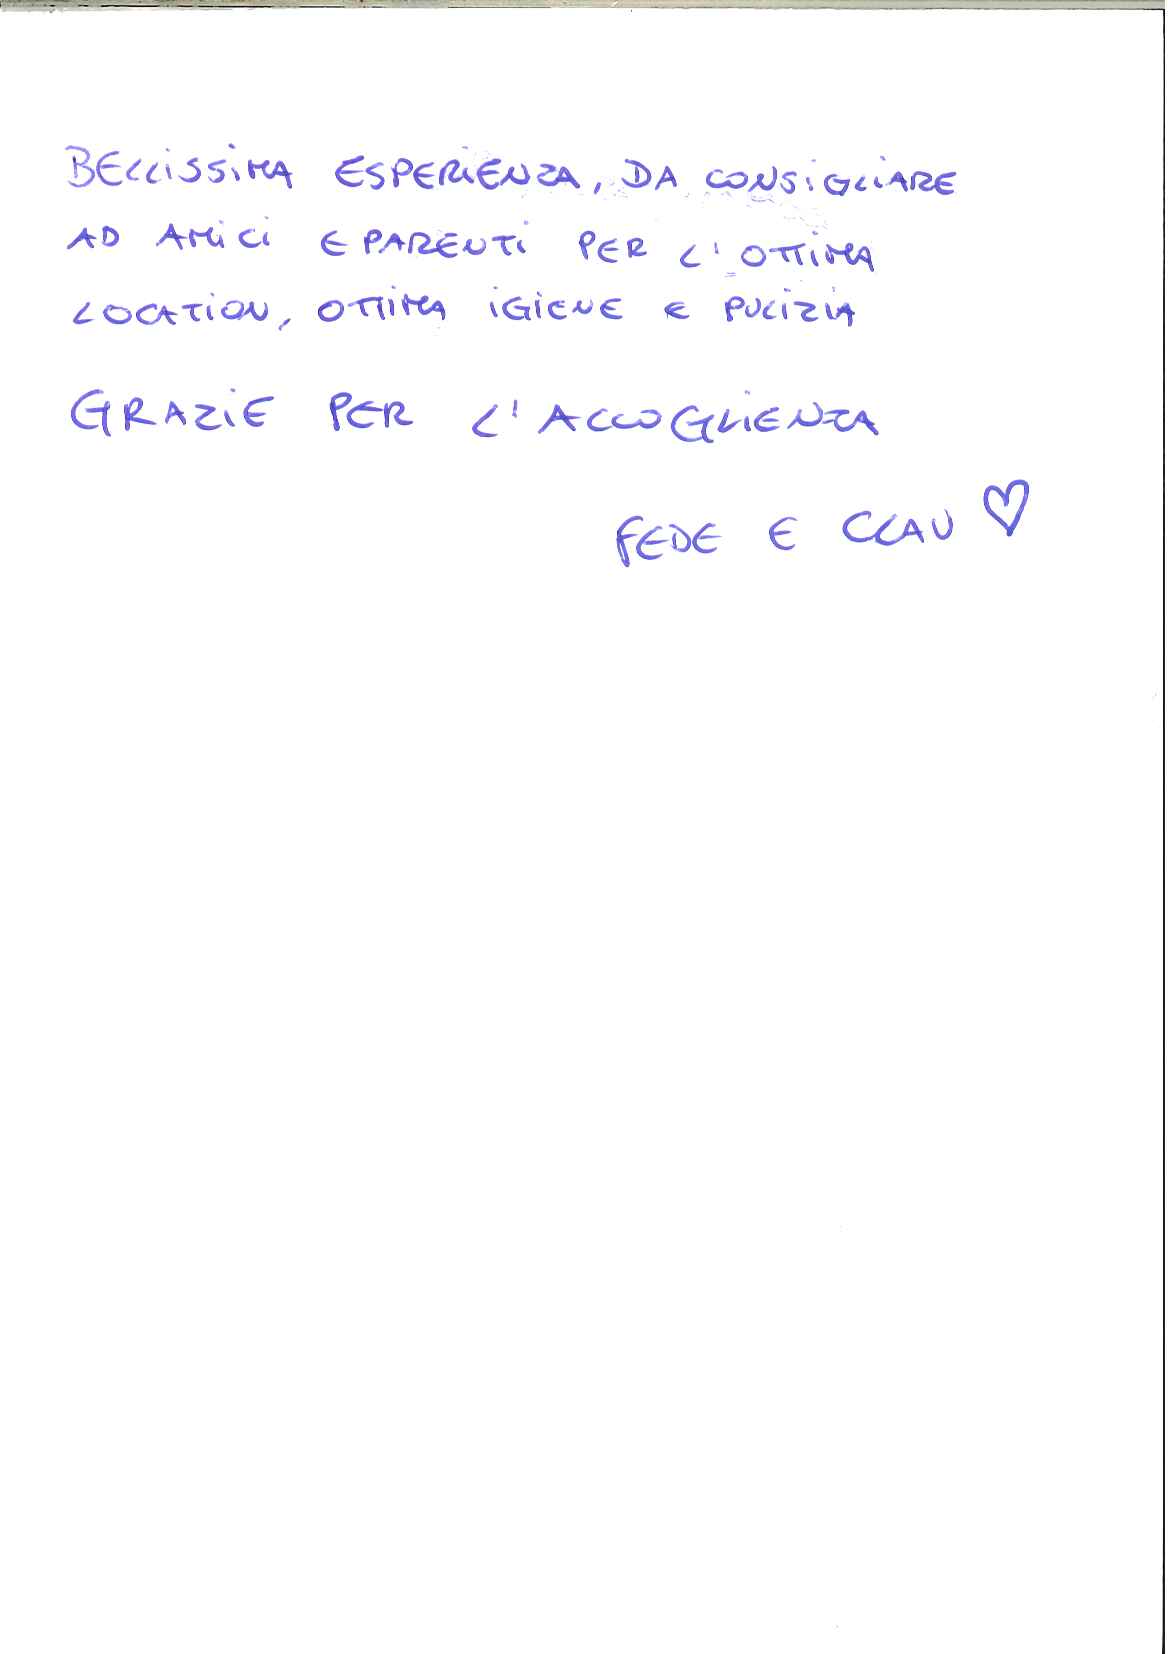 BELLISSIMA ESPERIENZA, DA CONSIGLIARE
AD AMICI E PARENTI PER L'OTTIMA
LOCATION, OTTIMA IGIENE E PULIZIA
GRAZIE PER L'ACCOGLIENZA
FEDE E CLAU ♡